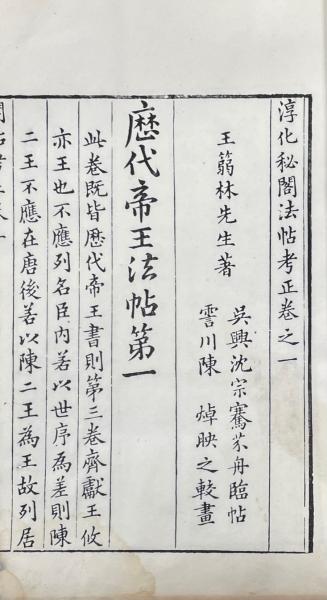 淳化秘閣法帖考正卷之一
王蒻林先生著
吳興沈宗騫芥舟臨帖
霅川陳焯映之較畫
歷代帝王法帖第一
此卷既皆歷代帝王書則第三卷齊獻王攸
亦王也不應列名臣內若以世序為差則陳
二王不應在唐後若以陳二王為王故列居